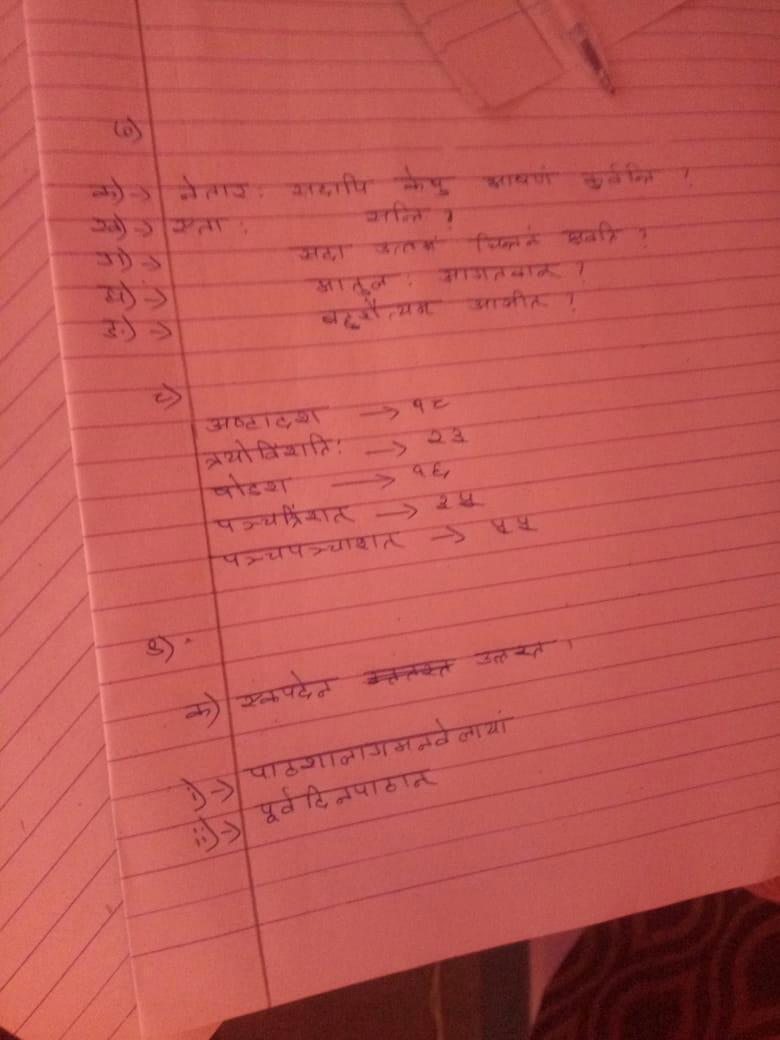 ७)
क) → नेतारः सदापि केषु भाषणं कुर्वन्ति ?
ख) → एताः सन्ति ?
ग) → सदा उत्तमं चिन्तनं भवति ?
घ) → आगतवान् ?
ङ) → आसीत् ?
८)
अष्टादश → १८
त्रयोविंशतिः → २३
षोडश → १६
पञ्चत्रिंशत् → ३५
पञ्चपञ्चाशत् → ५५
९)
क) एकपदेन उत्तरत ।
i) → पाठशालागमनवेलायां
ii) → पूर्वदिनपाठान्